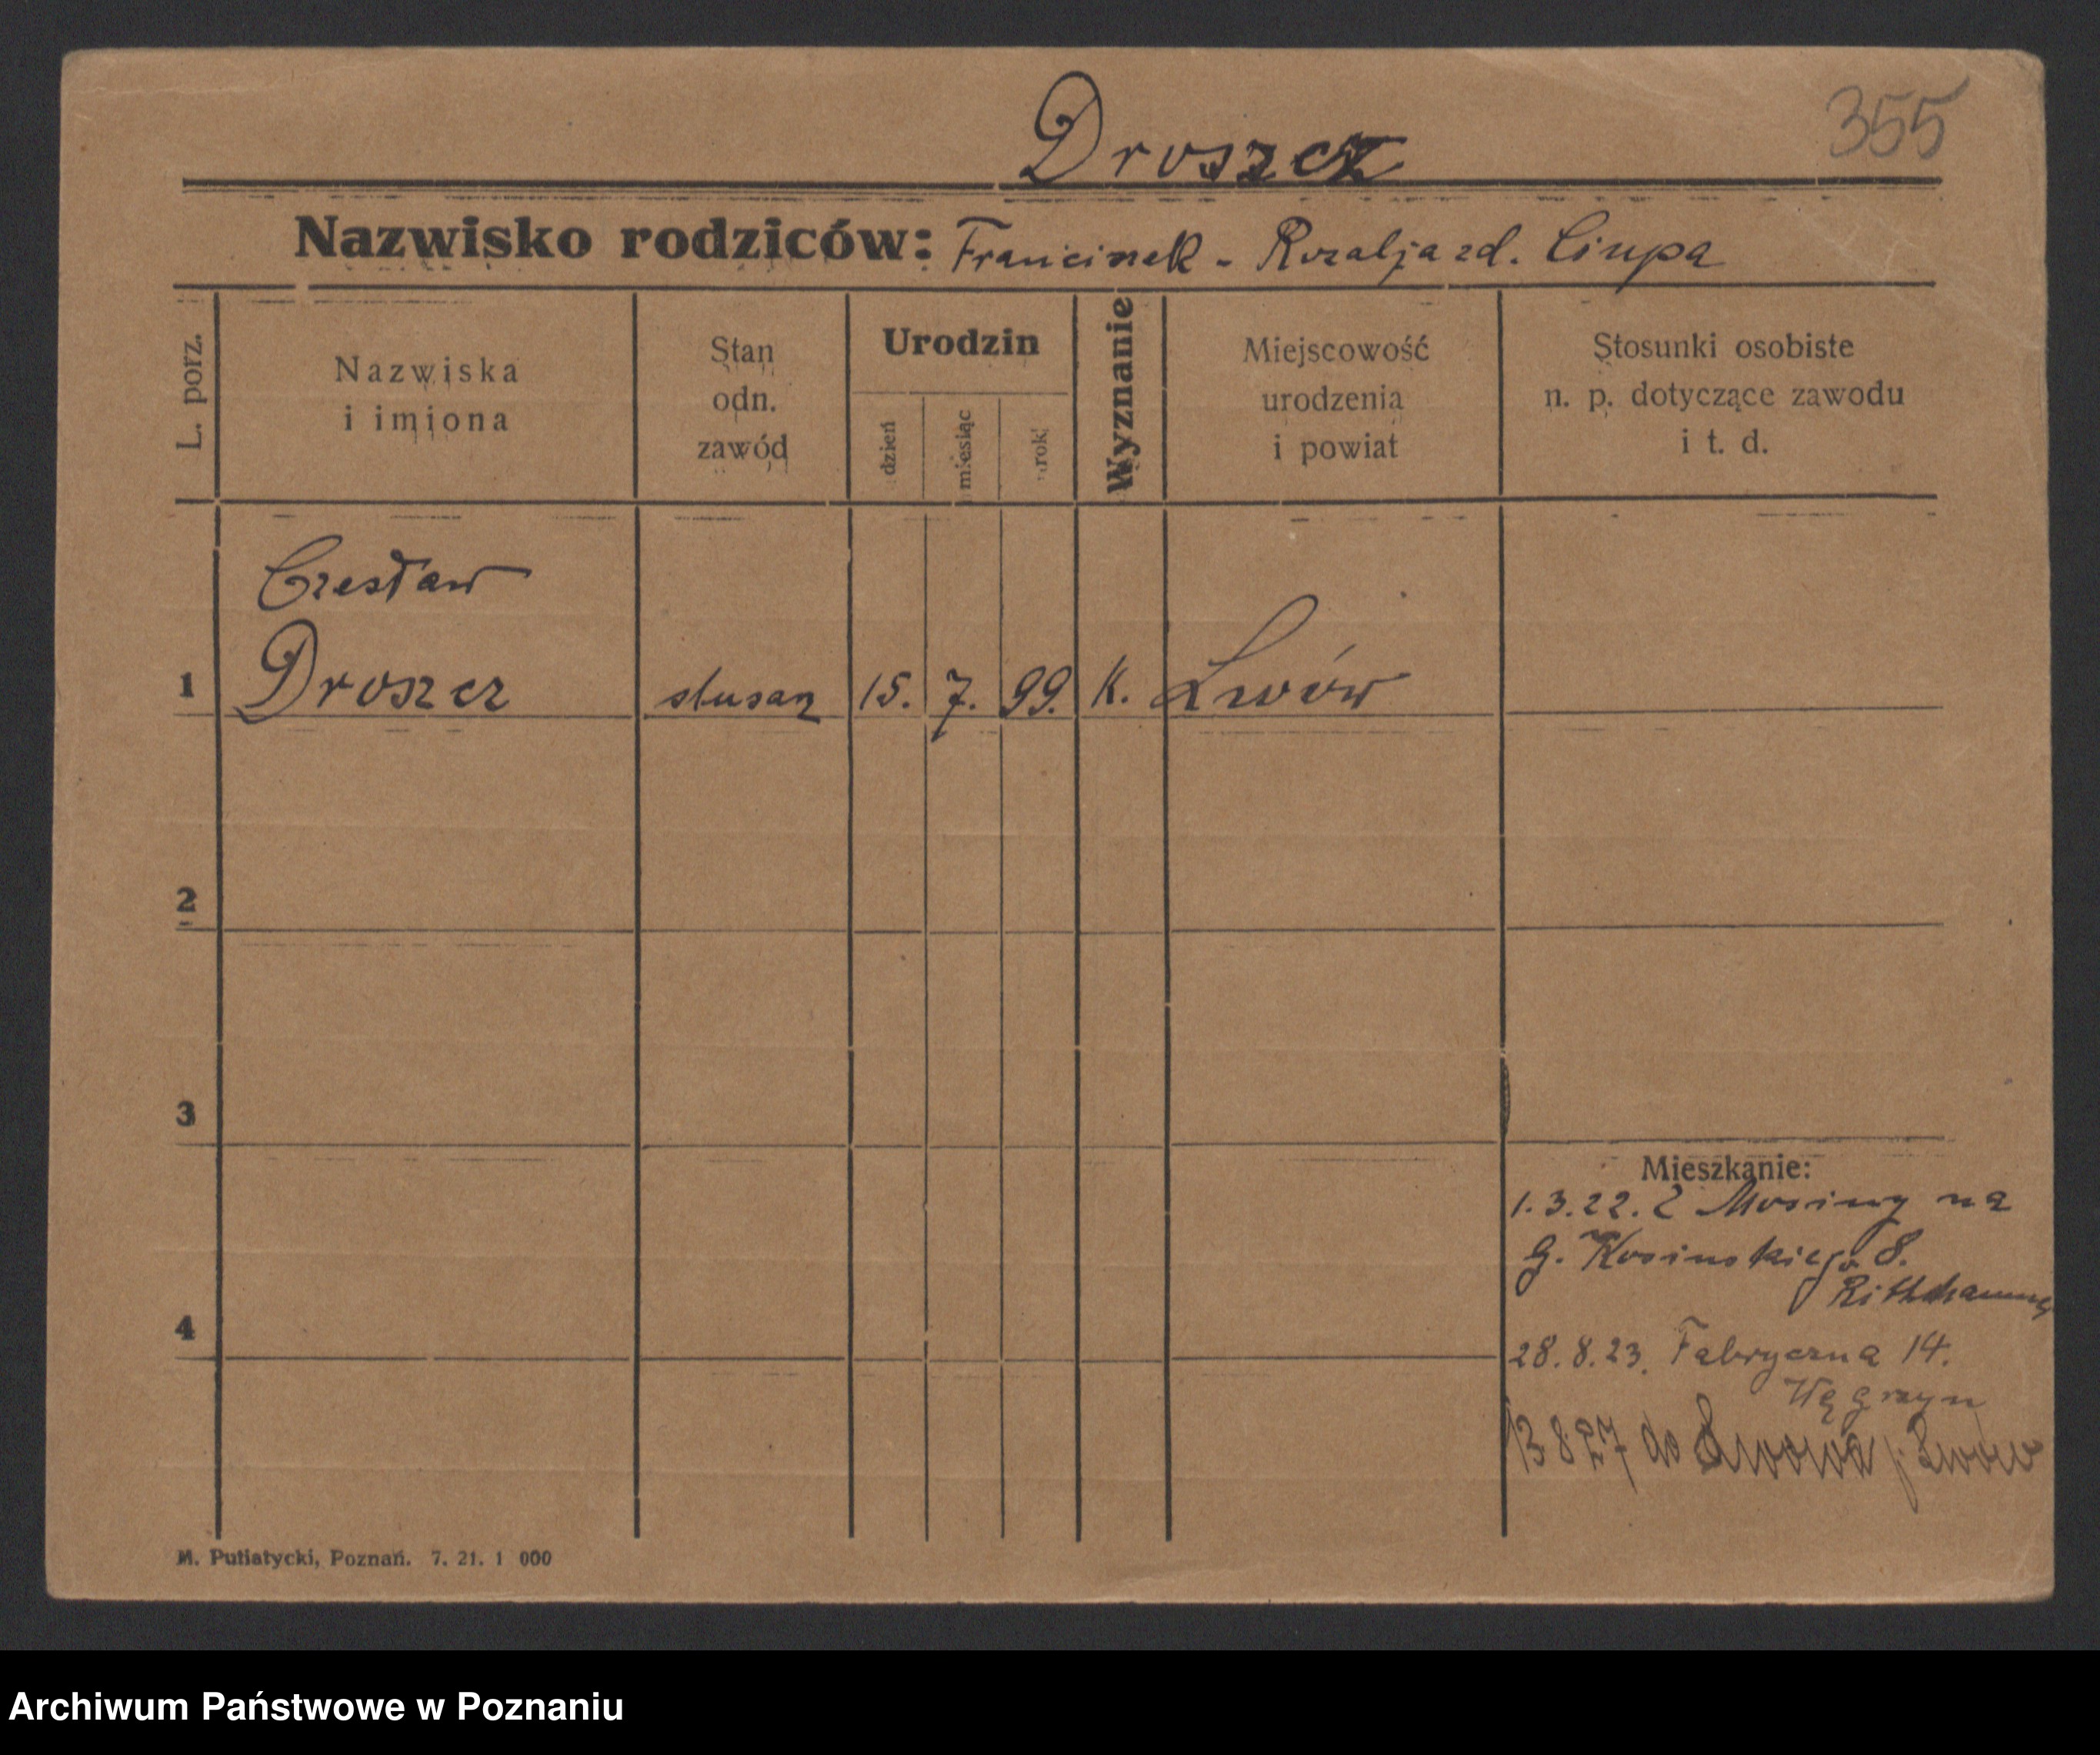 Droszcz 355
Nazwisko rodziców: Francisek - Rozalja zd. Ciupa
L. porz.
Nazwiska i imiona
Stan odn. zawód
Urodzin
dzień miesiąc rok
Wyznanie
Miejscowość urodzenia i powiat
Stosunki osobiste n. p. dotyczące zawodu i t. d.
Czesław
1 Droszcz ślusarz 15. 7. 99. K. Lwów
2
3
Mieszkanie:
1.3.22. Z Mosiny na
G. Kosinskiego 8.
4
28.8.23. Fabryczna 14.
Węgrzyn
13 8 27 do Lwowa p. Lwów
M. Putiatycki, Poznań. 7. 21. 1 000
Archiwum Państwowe w Poznaniu